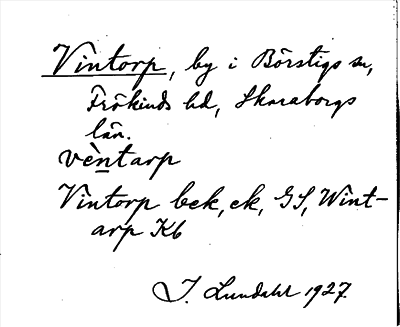 Vintorp, by i Börstigs sn,
Frökinds hd, Skaraborgs
län.
vèntarp
Vintorp bek, ek, GS, Wint-
arp Kb
I. Lundahl 1927.